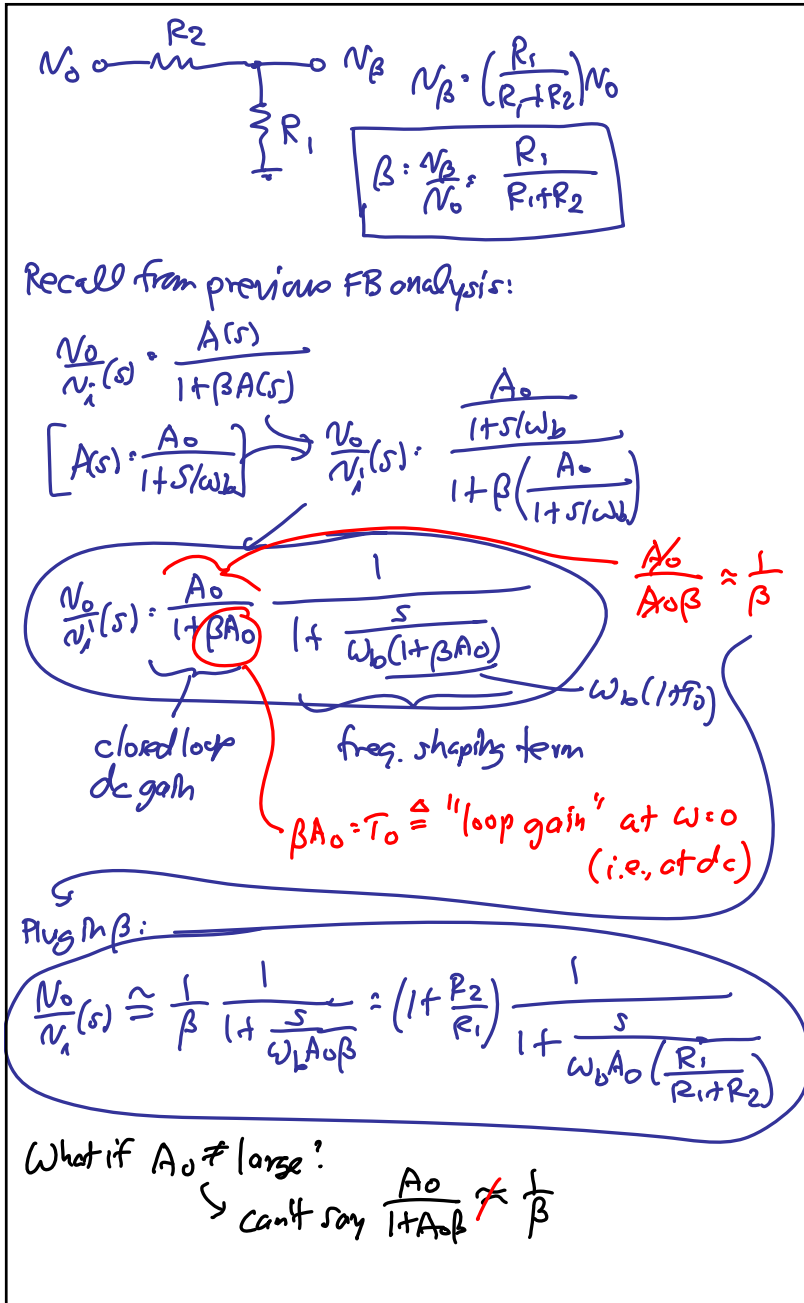 R2
v_o v_β v_β = (R_1/(R_1+R_2)) v_o
R_1
β = v_β/v_o = R_1/(R_1+R_2)
Recall from previous FB analysis:
v_o/v_i (s) = A(s)/(1+βA(s))
[A(s) = A_o/(1+s/ω_b)] → v_o/v_i (s) = (A_o/(1+s/ω_b))/(1+β(A_o/(1+s/ω_b)))
v_o/v_i (s) = A_o/(1+βA_o) · 1/(1+ s/(ω_b(1+βA_o)))
A_o/(A_oβ) ≈ 1/β
ω_b(1+T_o)
closed loop dc gain
freq. shaping term
βA_o = T_o ≜ "loop gain" at ω=0
(i.e., at dc)
Plug in β:
v_o/v_i (s) ≅ 1/β · 1/(1+ s/(ω_bA_oβ)) = (1+R_2/R_1) 1/(1+ s/(ω_bA_o(R_1/(R_1+R_2))))
What if A_o ≠ large?
↳ can't say A_o/(1+A_oβ) ≉ 1/β